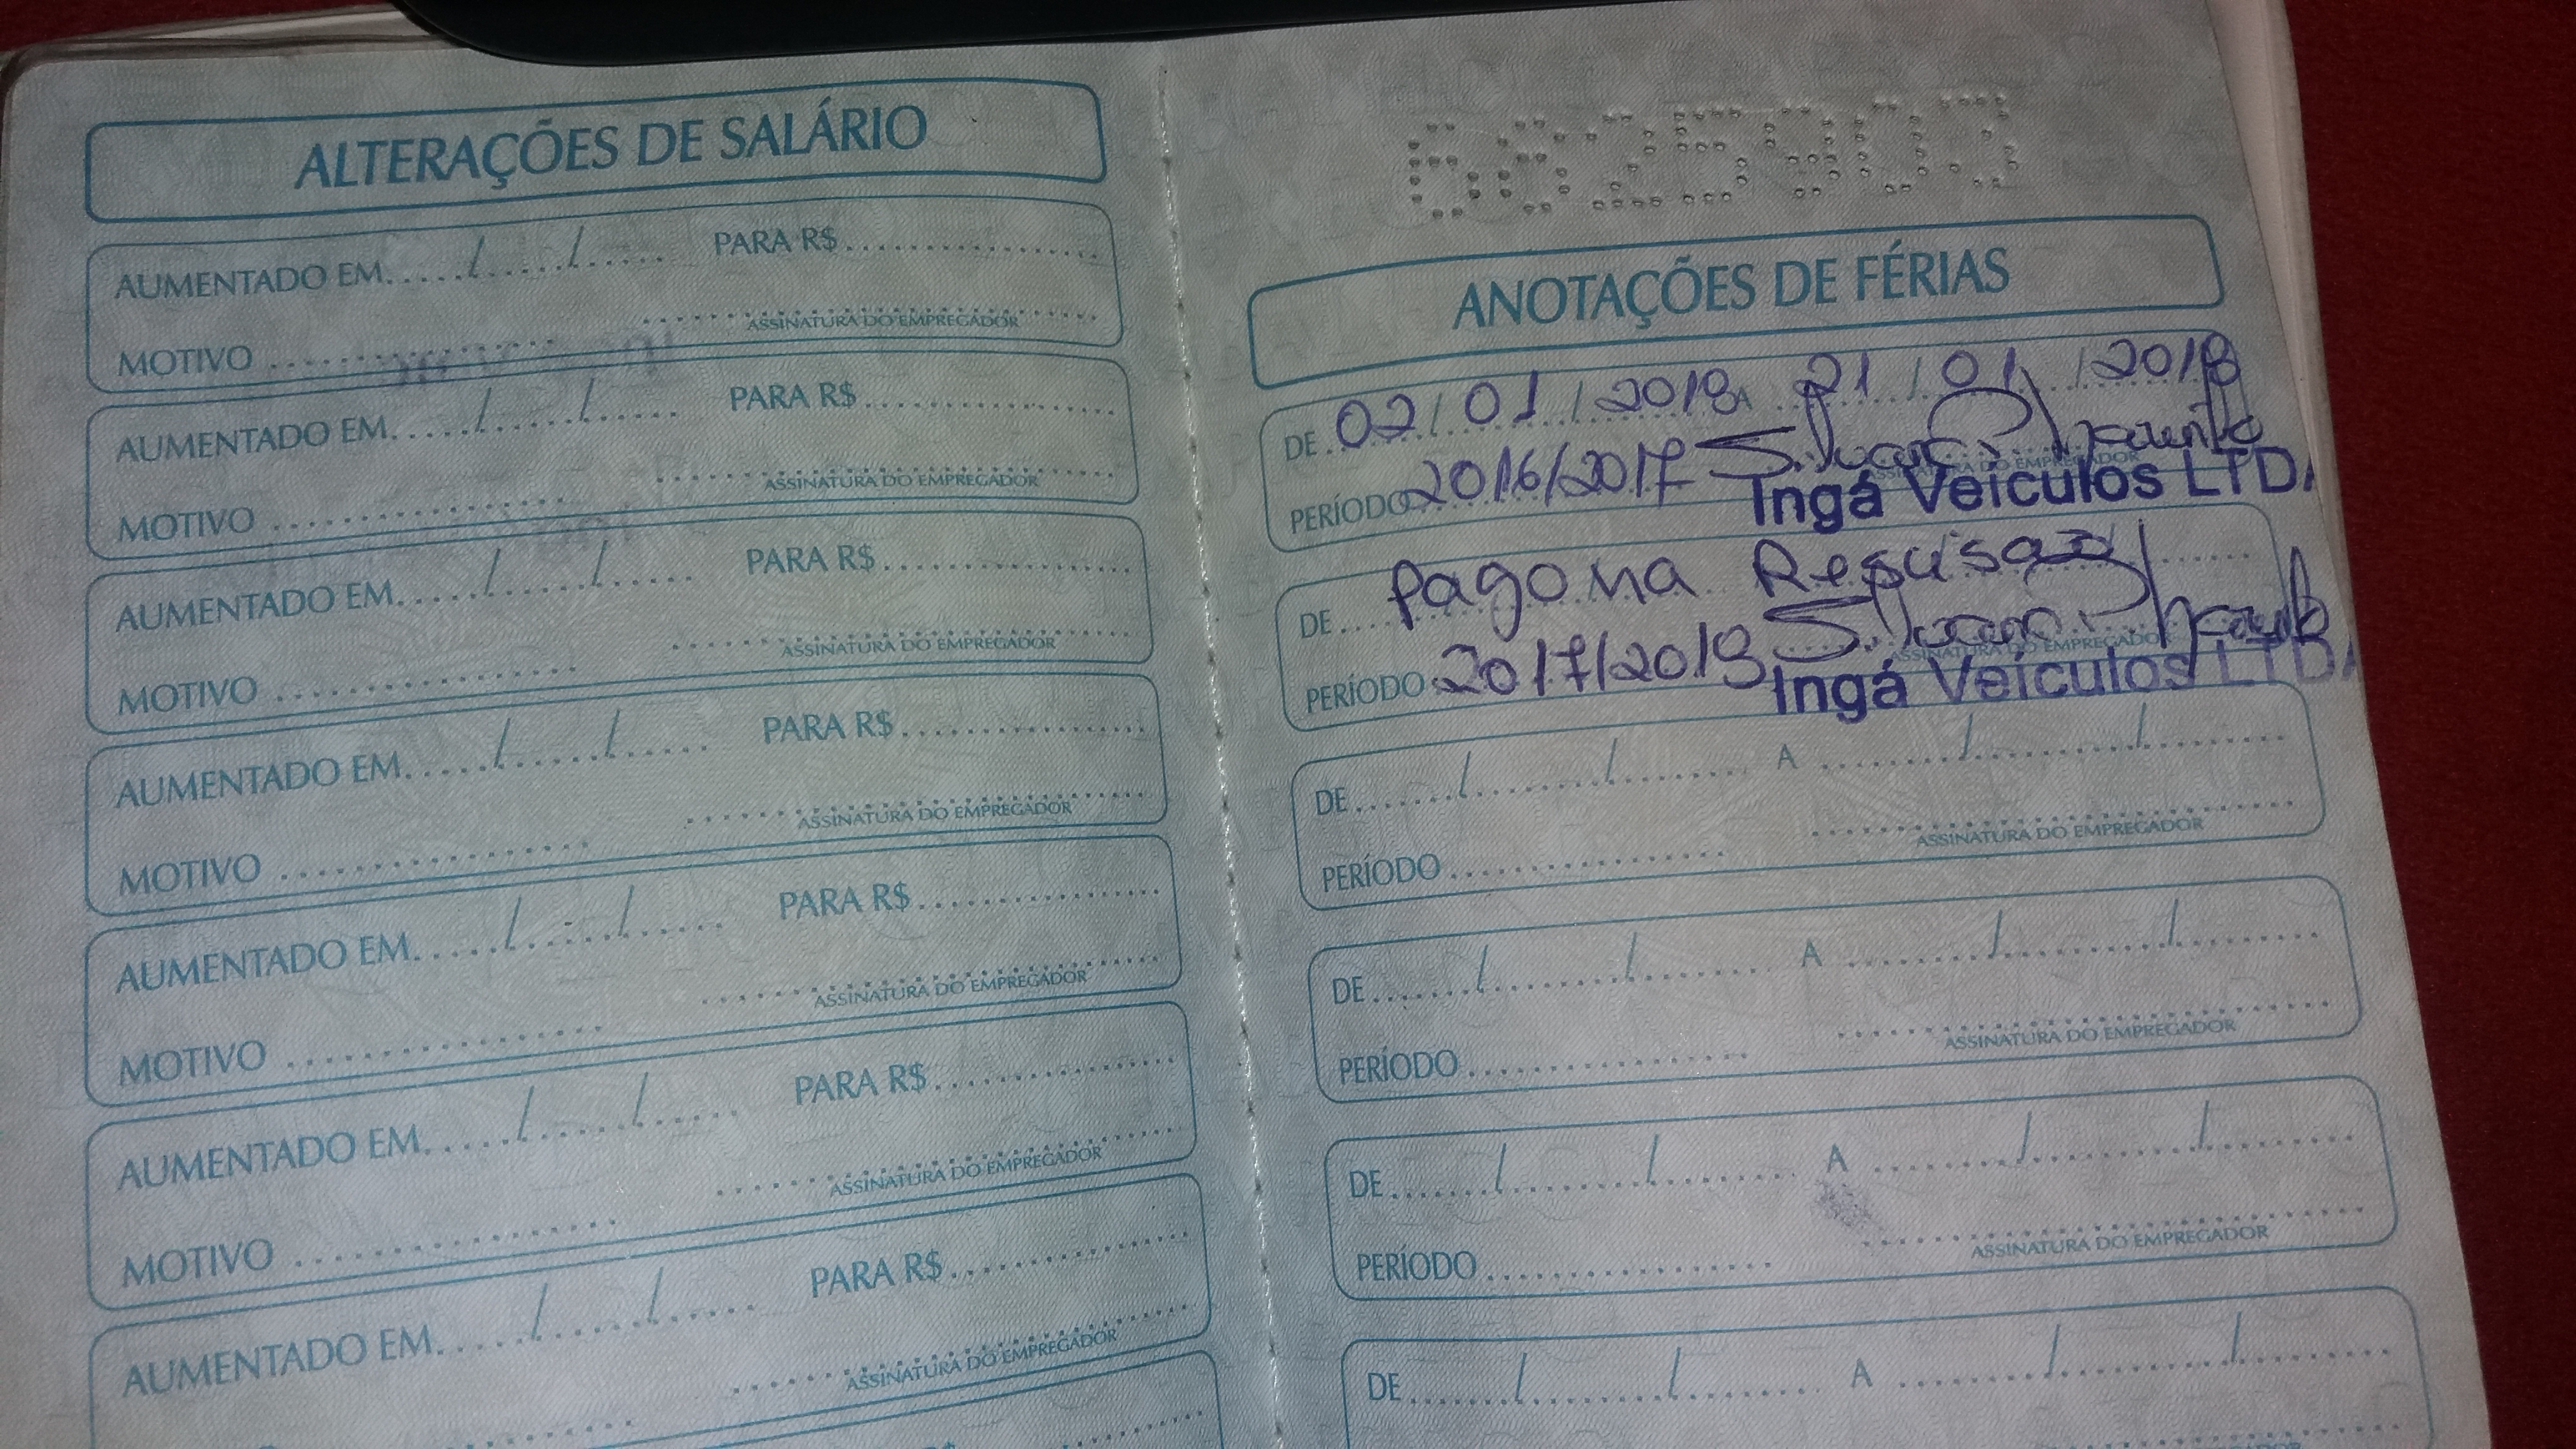 ALTERAÇÕES DE SALÁRIO
AUMENTADO EM...../...../..... PARA R$
ASSINATURA DO EMPREGADOR
MOTIVO
AUMENTADO EM...../...../..... PARA R$
ASSINATURA DO EMPREGADOR
MOTIVO
AUMENTADO EM...../...../..... PARA R$
ASSINATURA DO EMPREGADOR
MOTIVO
AUMENTADO EM...../...../..... PARA R$
ASSINATURA DO EMPREGADOR
MOTIVO
AUMENTADO EM...../...../..... PARA R$
ASSINATURA DO EMPREGADOR
MOTIVO
AUMENTADO EM...../...../..... PARA R$
ASSINATURA DO EMPREGADOR
MOTIVO
AUMENTADO EM...../...../..... PARA R$
ASSINATURA DO EMPREGADOR
ANOTAÇÕES DE FÉRIAS
DE 02/01/2018 A 21/01/2018
ASSINATURA DO EMPREGADOR
PERÍODO 2016/2017
Ingá Veículos LTDA
DE Pago na Rescisao
ASSINATURA DO EMPREGADOR
PERÍODO 2017/2018
Ingá Veículos LTDA
DE...../...../..... A ...../...../.....
ASSINATURA DO EMPREGADOR
PERÍODO
DE...../...../..... A ...../...../.....
ASSINATURA DO EMPREGADOR
PERÍODO
DE...../...../..... A ...../...../.....
ASSINATURA DO EMPREGADOR
PERÍODO
DE...../...../..... A ...../...../.....